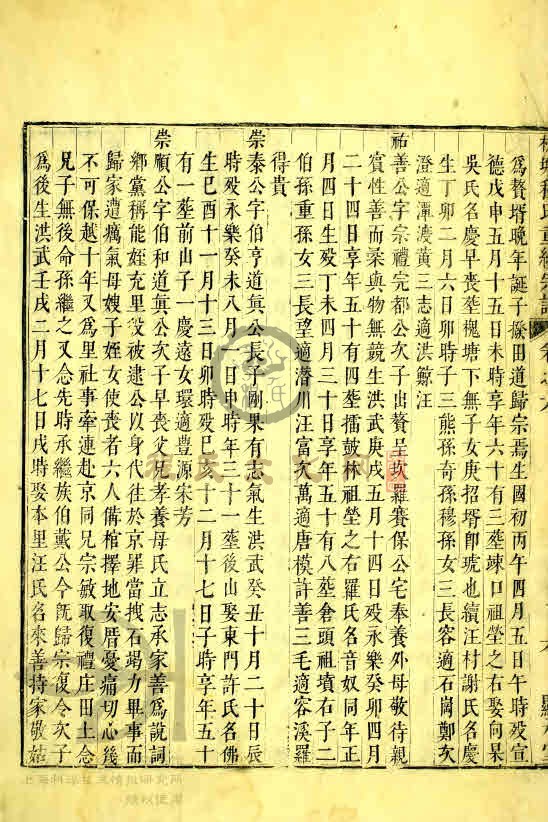 為贅壻晚年誕子撥田道歸宗焉生國初丙午四月五日午時殁宣
德戊申五月十五日未時享年六十有三塟竦口祖塋之右娶向杲
吳氏名慶早喪塟槐塘下無子女庚招壻即琥也續汪村謝氏名慶
生丁卯二月六日卯時子三熊孫奇孫穆孫女三長容適石岡鄭次
澄適潭渡黃三志適洪鯨汪
祐善公字宗禮完都公次子出贅呈坎羅賽保公宅奉養外母敬待親
賓性善而柔與物無競生洪武庚戌五月十四日殁永樂癸卯八月
二十四日享年五十有四塟擂鼓林祖塋之右羅氏名音奴同年正
月四日生殁丁未四月三十日享年五十有八塟倉頭祖墳右子二
伯孫重孫女三長望適潛川汪富次萬適唐模許善三毛適容溪羅
得貴
崇泰公字伯亨道眞公長子剛果有志氣生洪武癸丑十月二十日辰
時殁永樂癸未八月一日申時年三十一塟後山娶東門許氏名佛
生己酉十一月十三日卯時殁己亥十二月七日子時享年五十
有一塟前山子一慶遠女環適豐源宋芳
崇順公字伯和道眞公次子早喪父克孝養母氏立志承家善為說詞
鄉黨稱能姪充里役被逮公以身代往於京罪當拽石竭力畢事而
歸家遭癘氣母嫂子姪女使喪者六人備棺擇地安厝憂痛切心幾
不可保越十年又為里社事牽連赴京同兄宗敏取復禮庄田土念
兄子無後命孫繼之又念先時承繼族伯戴公今旣歸宗復令次子
為後生洪武壬戌二月十七日戌時娶本里汪氏名來善持家敬姑